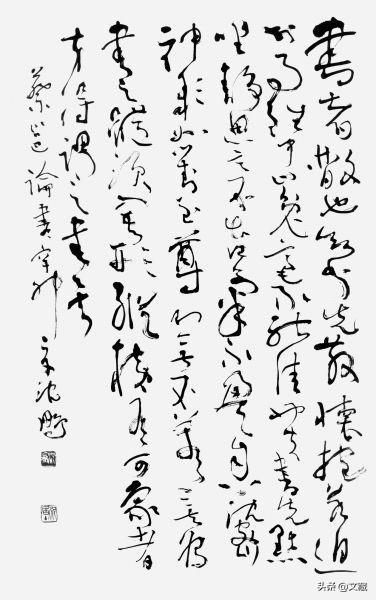 書者散也欲書先散懷抱若迫
於事雖中山兔毫不能佳也夫書先默
坐靜思言不出口氣不盈息沉密
神彩如對至尊則無不善矣為
書之體須入其形縱橫有可象者
方得謂之書矣
蔡邕論書 沈鵬
头条 @文藏